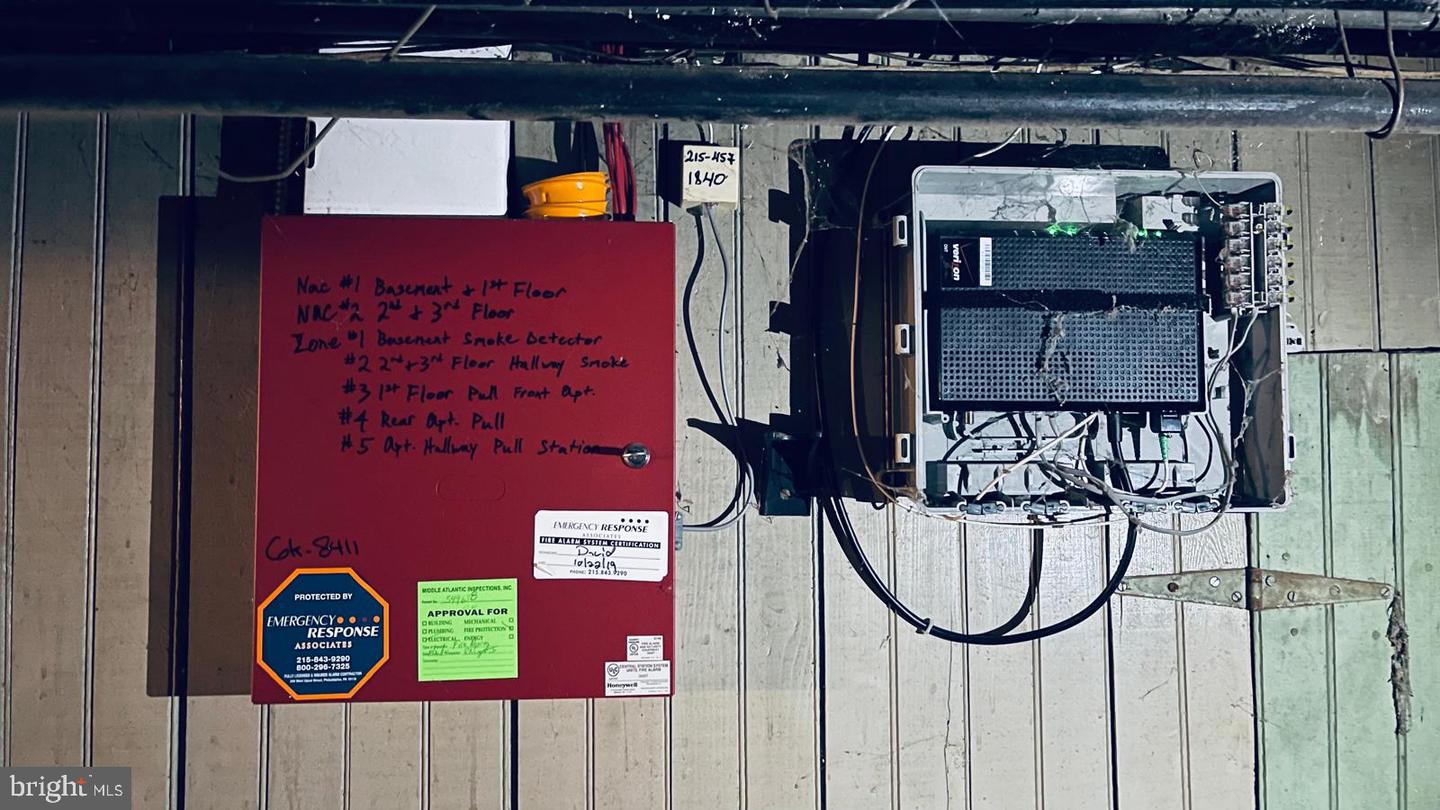 215-457
1840
verizon
Nac #1 Basement + 1st Floor
NAC #2 2nd + 3rd Floor
Zone #1 Basement Smoke Detector
#2 2nd + 3rd Floor Hallway Smoke
#3 1st Floor Pull Front Apt.
#4 Rear Apt. Pull
#5 Apt. Hallway Pull Station
EMERGENCY RESPONSE
ASSOCIATES
FIRE ALARM SYSTEM CERTIFICATION
David
10/22/19
PHONE: 215.843.9290
PROTECTED BY
EMERGENCY
RESPONSE
ASSOCIATES
215-843-9290
800-296-7325
FULLY LICENSED & INSURED ALARM CONTRACTOR
MIDDLE ATLANTIC INSPECTIONS, INC.
APPROVAL FOR
BUILDING MECHANICAL
PLUMBING FIRE PROTECTION
ELECTRICAL ENERGY
CENTRAL STATION SYSTEM
UNITS, FIRE ALARM
Honeywell
bright MLS